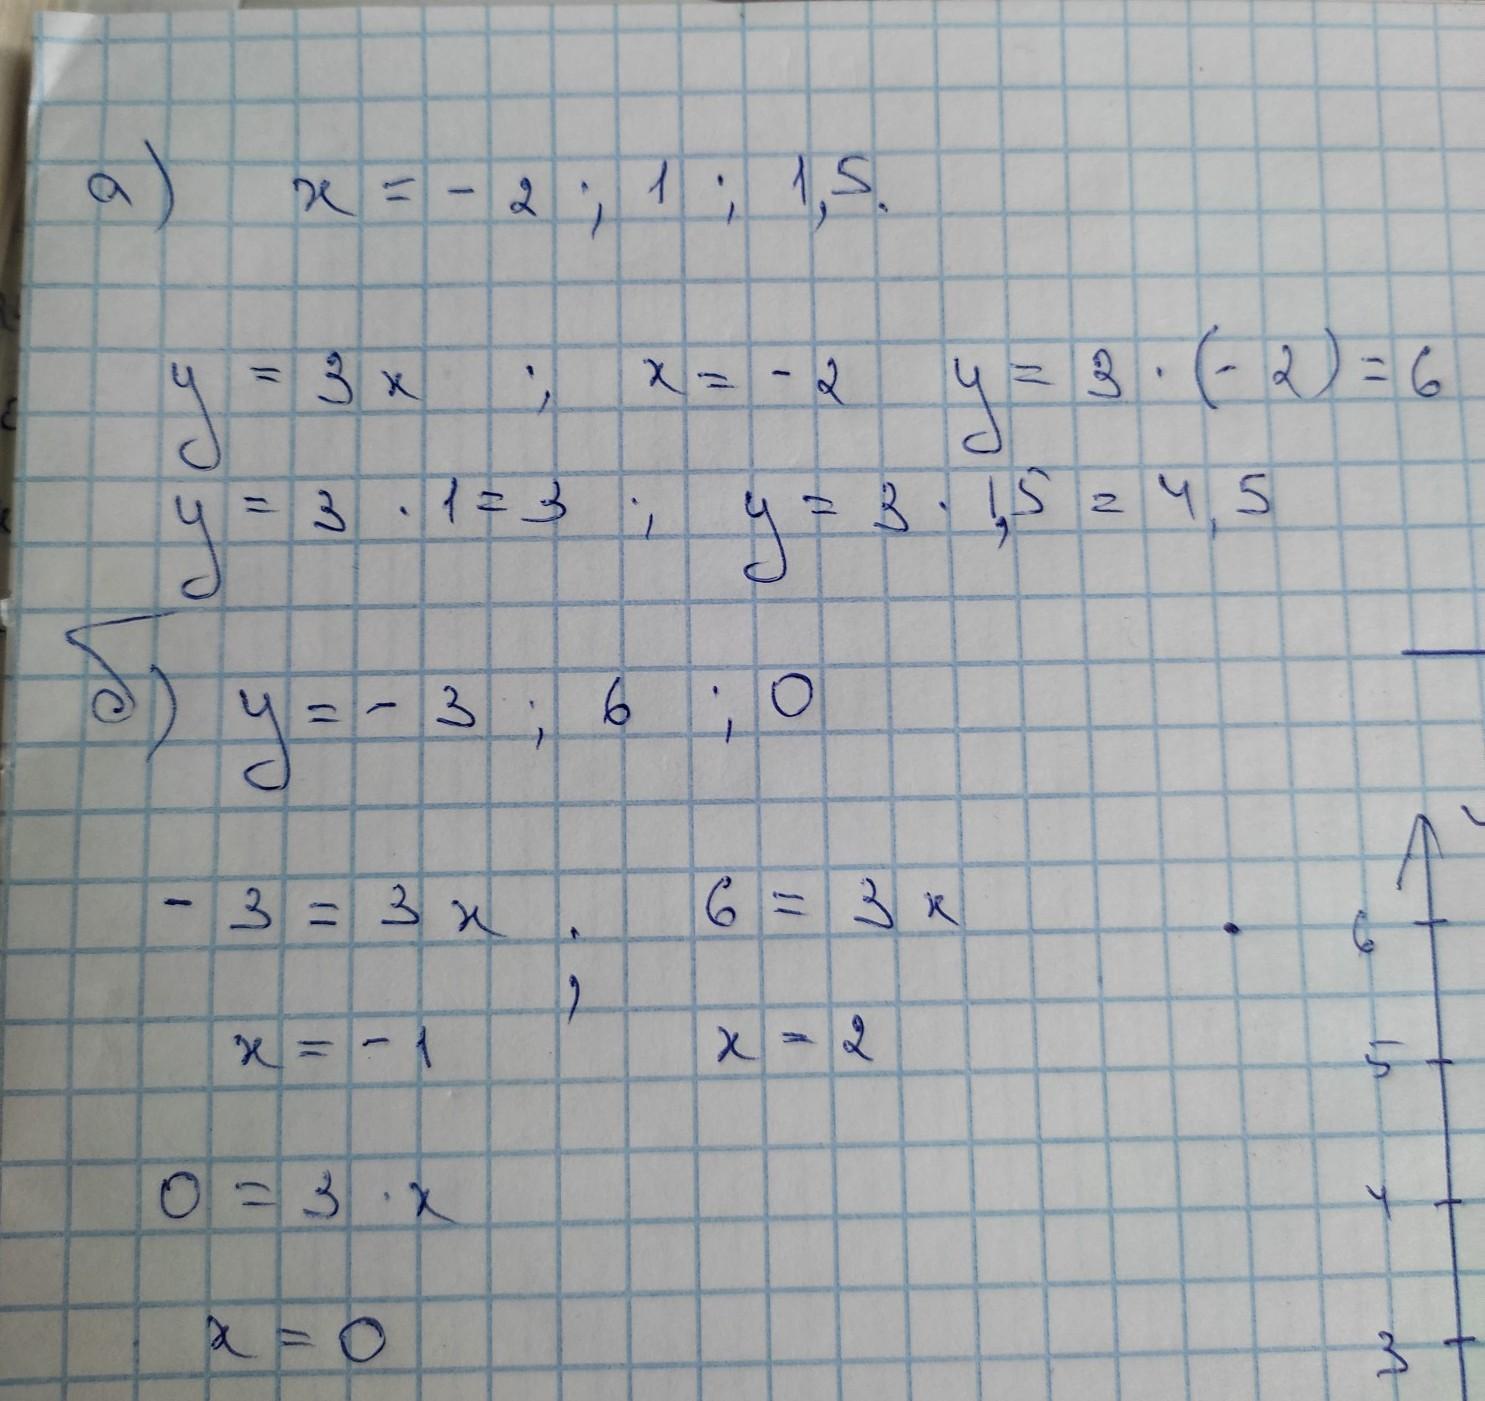 а) x = - 2 ; 1 ; 1,5.
y = 3x ; x = - 2 y = 3 · (- 2) = 6
y = 3 · 1 = 3 ; y = 3 · 1,5 = 4,5
б) y = - 3 ; 6 ; 0
- 3 = 3x ; 6 = 3x
x = - 1 x = 2
0 = 3 · x
x = 0
6
5
4
3